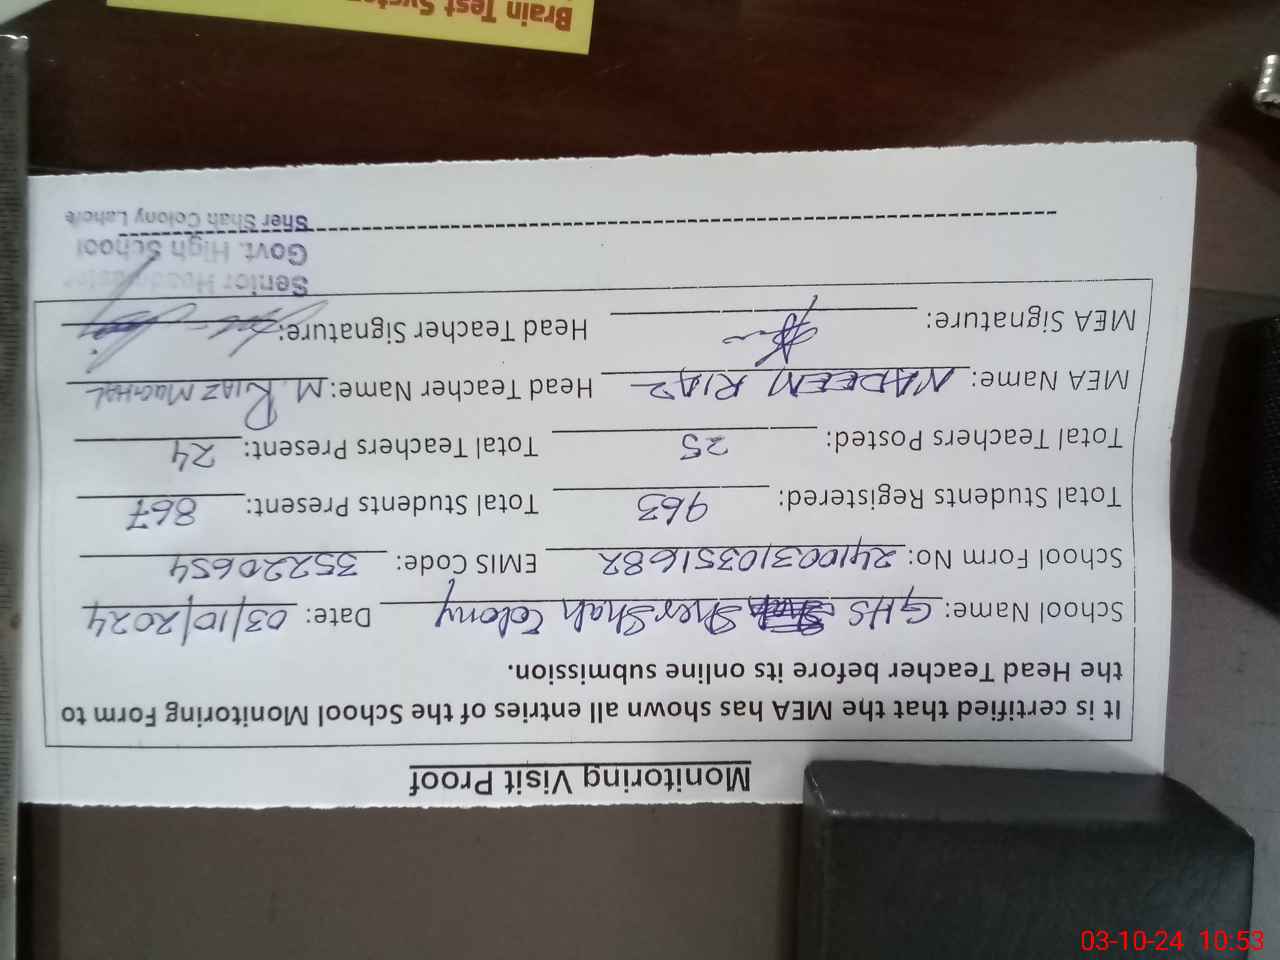 Monitoring Visit Proof
It is certified that the MEA has shown all entries of the School Monitoring Form to
the Head Teacher before its online submission.
School Name: GHS Sher Shah Colony Date: 03/10/2024
School Form No: 241003103516 82 EMIS Code: 35220654
Total Students Registered: 963 Total Students Present: 867
Total Teachers Posted: 25 Total Teachers Present: 24
MEA Name: NADEEM RIAZ Head Teacher Name: M. RIAZ MUGHAL
MEA Signature: Head Teacher Signature:
Senior Headmaster
Govt. High School
Sher Shah Colony Lahore
Brain Test System
03-10-24 10:53